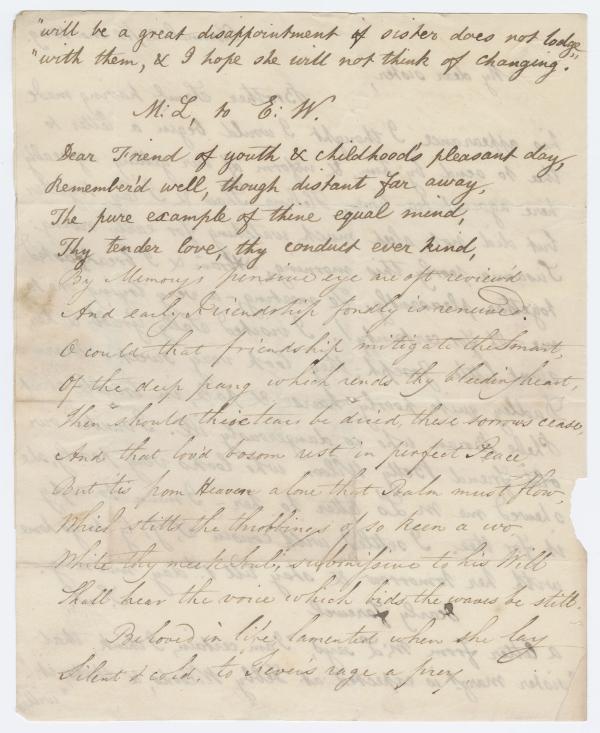 "will be a great disappointment if sister does not lodge"
"with them, & I hope she will not think of changing.
M: L, to E: W.
Dear Friend of youth & childhood's pleasant day,
Remember'd well, though distant far away,
The pure example of thine equal mind,
Thy tender love, thy conduct ever kind,
By Memory's pensive eye are oft review'd
And early Friendship fondly is renewed.
O could that friendship mitigate the smart,
Of the deep pang which rends thy bleeding heart,
Then should these tears be dried, these sorrows cease,
And that lov'd bosom rest in perfect Peace
But 'tis from Heaven alone that Balm must flow,
Which stills the throbbings of so keen a wo
While thy meek soul, submissive to his Will
Shall hear the voice which bids the waves be still.
Beloved in life, lamented when she lay
Silent & cold, to Fever's rage a prey,